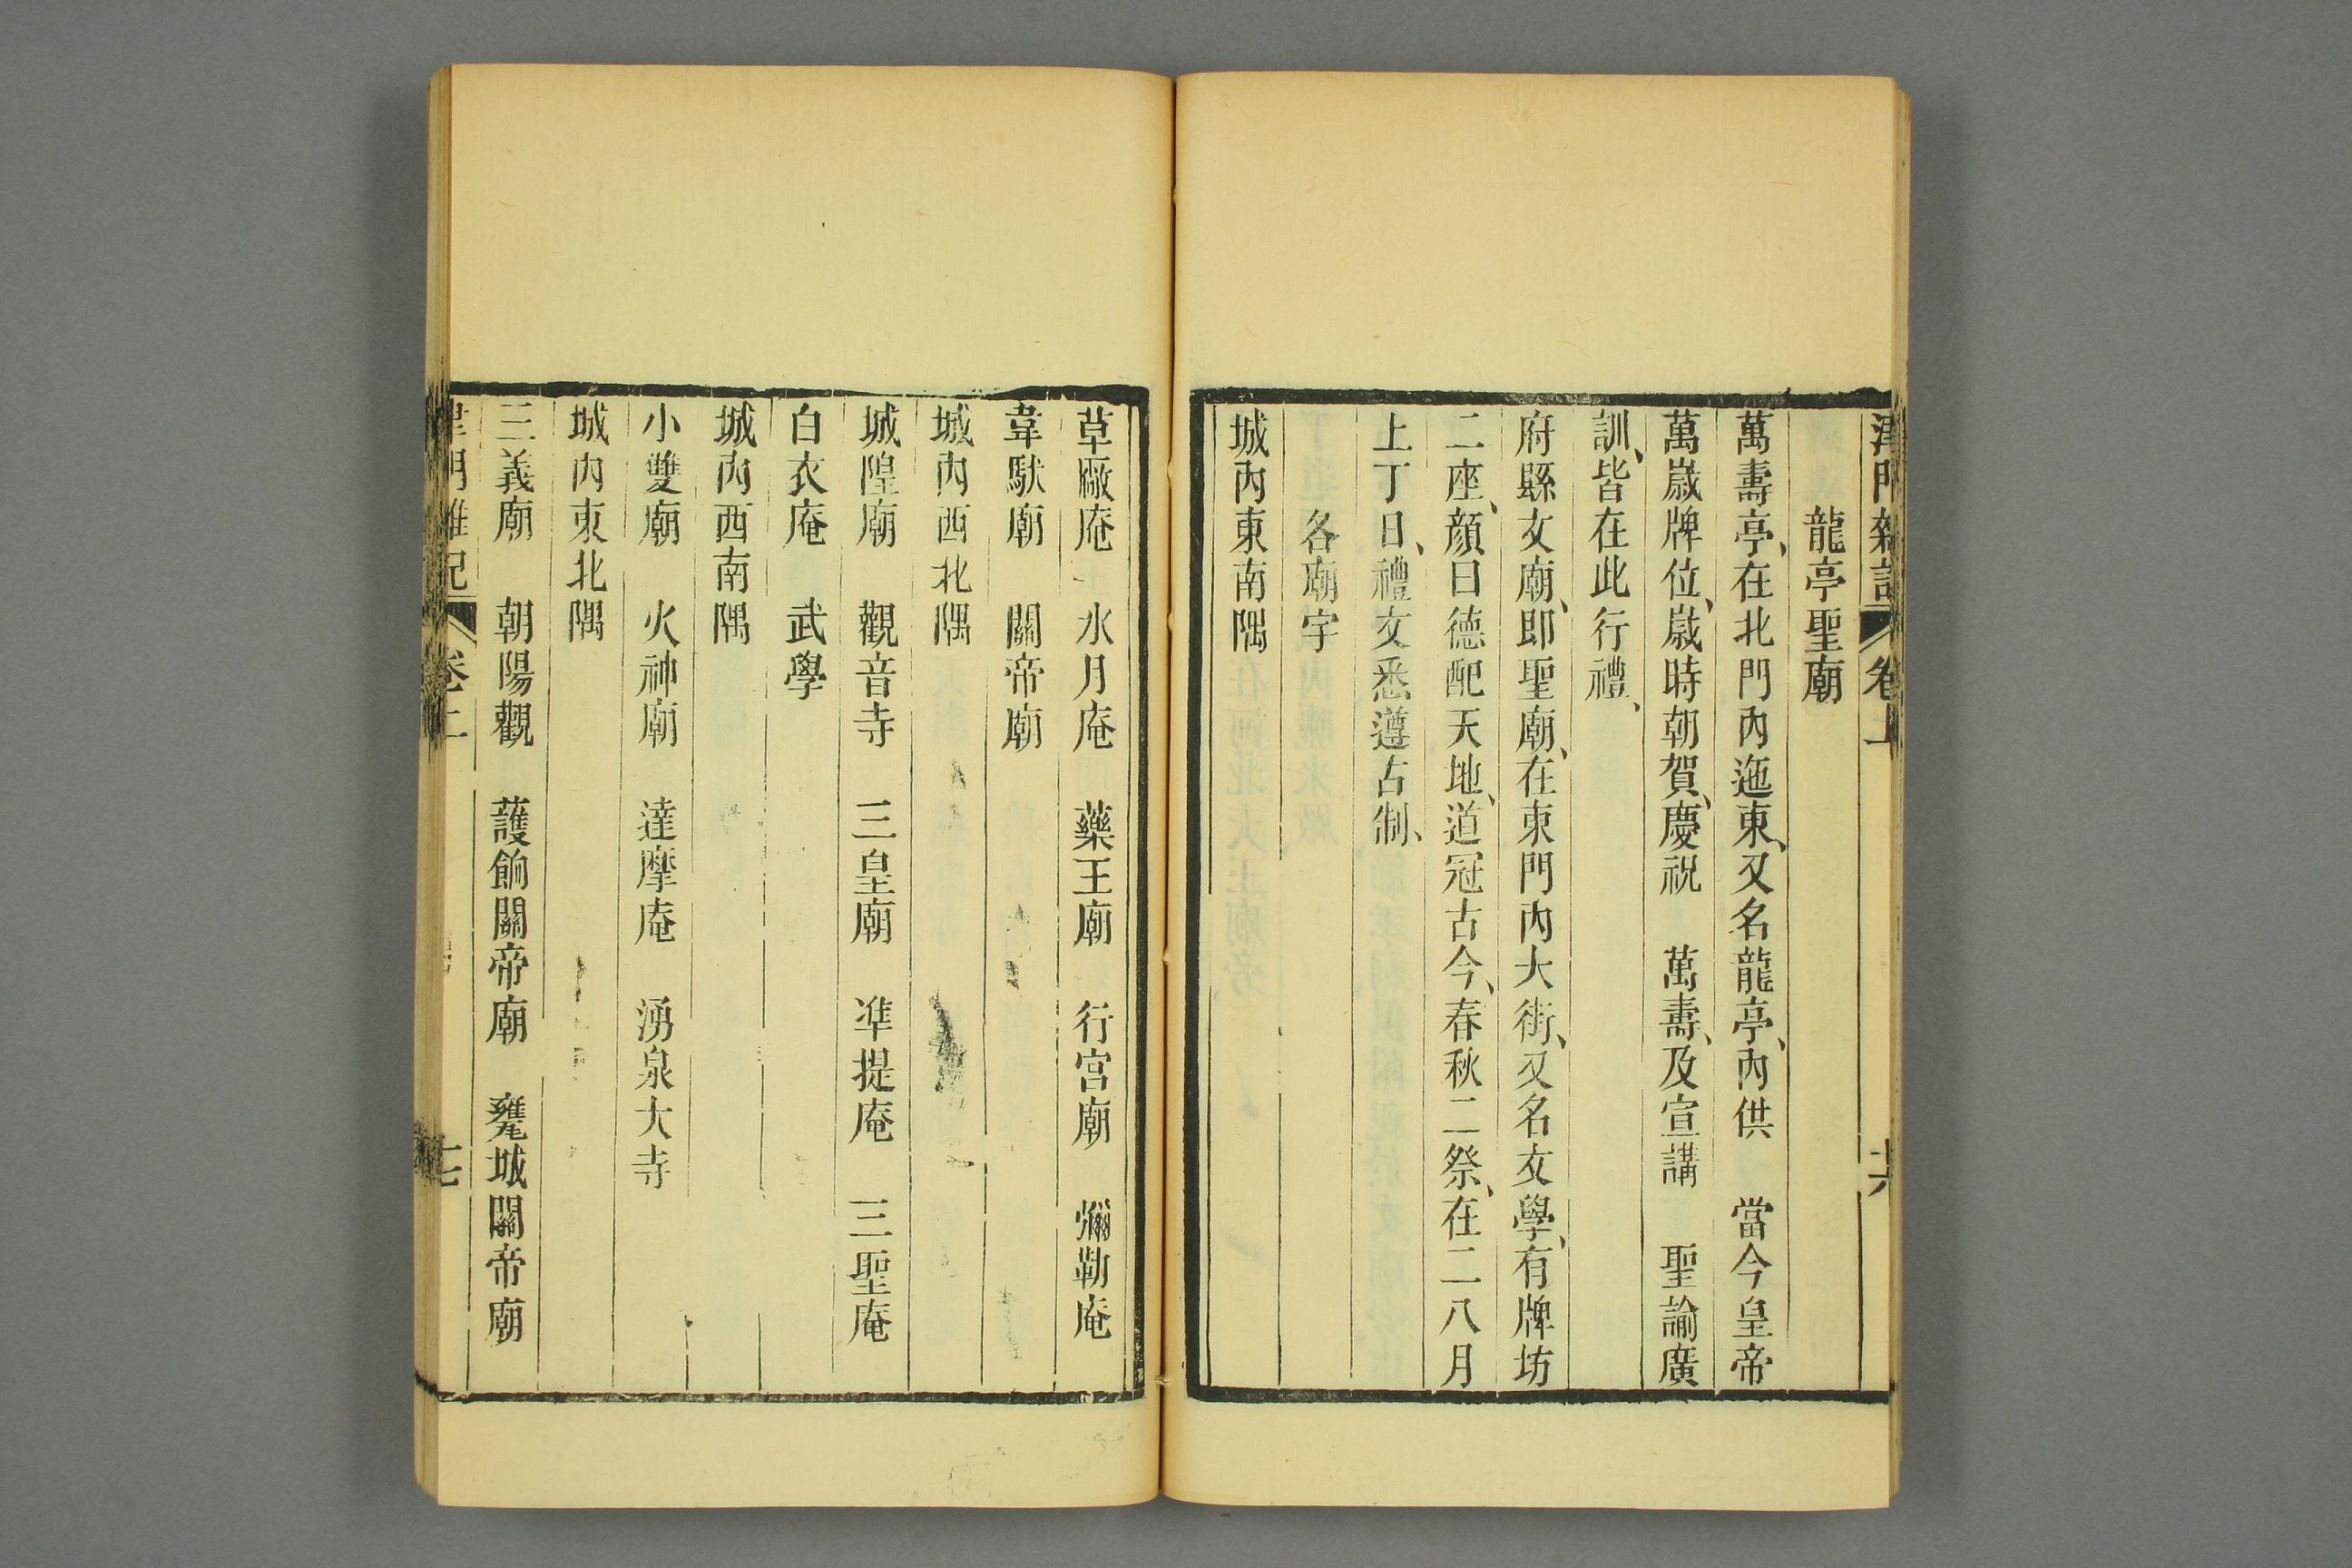 津門雜記 卷上 十六
龍亭聖廟
萬壽亭、在北門內迤東、又名龍亭、內供 當今皇帝
萬歲牌位、歲時朝賀、慶祝 萬壽、及宣講 聖諭廣
訓、皆在此行禮、
府縣文廟、即聖廟、在東門內大街、又名文學、有牌坊
二座、顏曰德配天地、道冠古今、春秋二祭、在二八月
上丁日、禮文悉遵古制、
各廟宇
城內東南隅
草廠庵 水月庵 藥王廟 行宮廟 彌勒庵
韋馱廟 關帝廟
城內西北隅
城隍廟 觀音寺 三皇廟 準提庵 三聖庵
白衣庵 武學
城內西南隅
小雙廟 火神廟 達摩庵 湧泉大寺
城內東北隅
三義廟 朝陽觀 護餉關帝廟 甕城關帝廟
津門雜記 卷上 十七